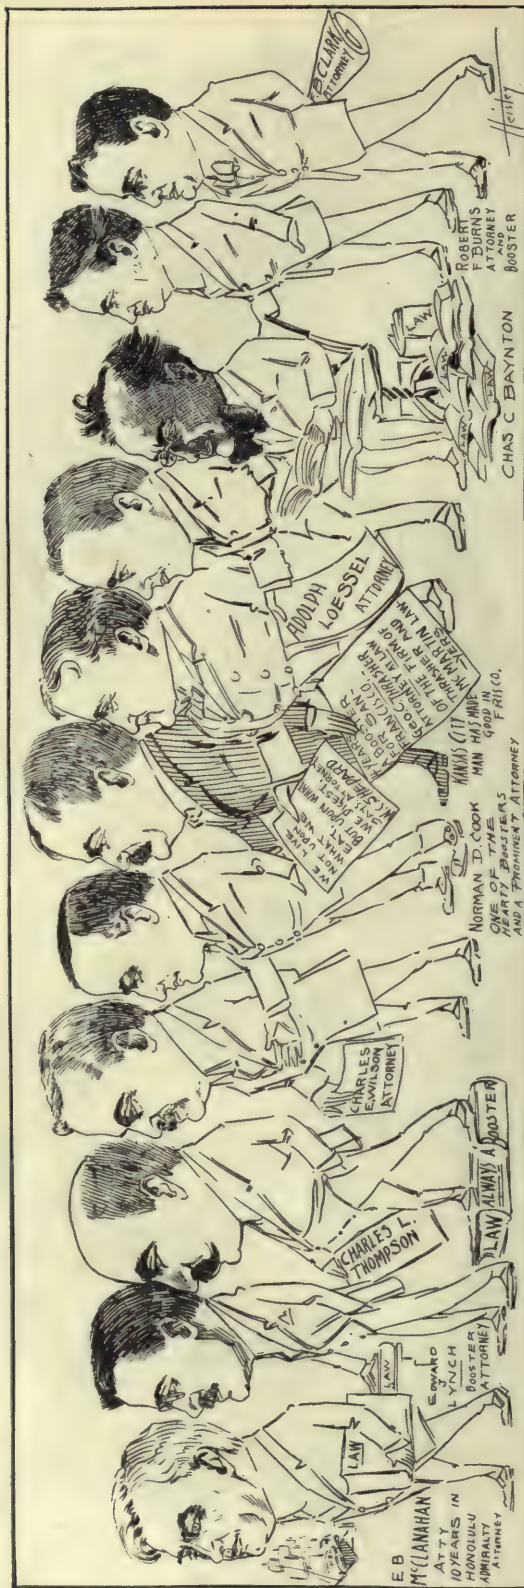 EB
McCLANAHAN
ATTY
10 YEARS IN
HONOLULU
ADMIRALTY
ATTORNEY
LAW
LAW
EDWARD
J
LYNCH
BOOSTER
ATTORNEY
CHARLES L.
THOMPSON
LAW
ALWAYS A BOOSTER
CHARLES
E. WILSON
ATTORNEY
NORMAN D. COOK
ONE OF THE
HEARTY BOOSTERS
AND A PROMINENT ATTORNEY
WE LIVE
NOT UPON
WHAT WE
EAT
BUT UPON WHAT
WE DIGEST
SAYS ATTORNEY
W C SHEPARD
KANSAS CITY
MAN HAS MADE
GOOD IN
FRISCO.
4 YEARS
A BOOSTER
FOR SAN-
FRANCISCO
GEO. C. THRASHER
ATTORNEY AT LAW
OF THE FIRM OF
THRASHER AND
McMARTIN LAW
YERS
ADOLPH
LOESSEL
ATTORNEY
LAW
LAW
LAW
LAW
CHAS C BAYNTON
ROBERT
F BURNS
ATTORNEY
AND
BOOSTER
E B CLARK
ATTORNEY
Heisley